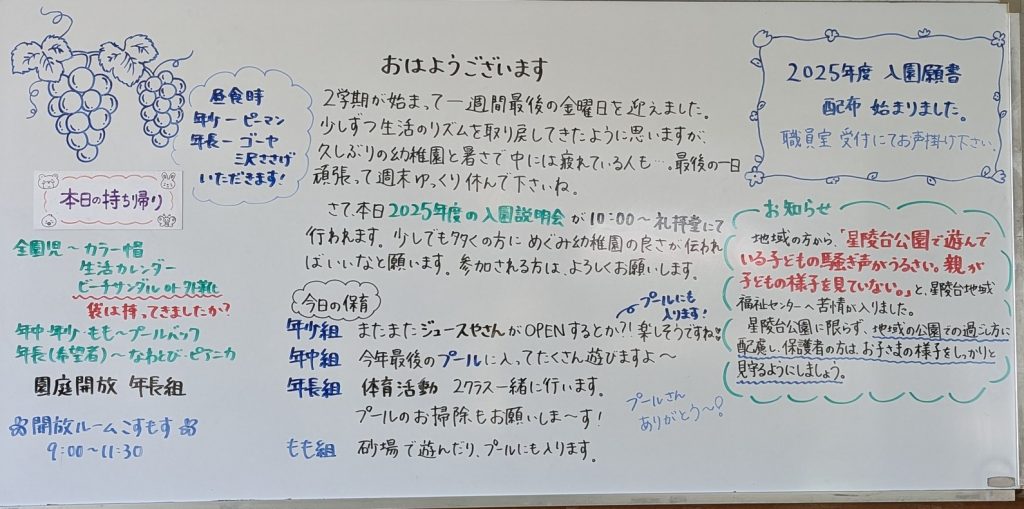 おはようございます
2学期が始まって一週間最後の金曜日を迎えました。
少しずつ生活のリズムを取り戻してきたように思いますが、
久しぶりの幼稚園と暑さで中には疲れている人も…。最後の一日
頑張って週末ゆっくり休んで下さいね。
さて、本日2025年度の入園説明会が10:00〜礼拝堂にて
行われます。少しでも多くの方にめぐみ幼稚園の良さが伝われ
ばいいなと願います。参加される方は、よろしくお願いします。
今日の保育
プールにも
入ります!
年少組 またまたジュースやさんがOPENするとか?!楽しそうですね♡
年中組 今年最後のプールに入ってたくさん遊びますよ〜
年長組 体育活動 2クラス一緒に行います。
プールのお掃除もお願いしま〜す!
プールさん
ありがとう〜!
もも組 砂場で遊んだり、プールにも入ります。
昼食時
年少-ピーマン
年長-ゴーヤ
三沢ささげ
いただきます!
本日の持ち帰り
全園児〜カラー帽
生活カレンダー
ビーチサンダル or 外靴
袋は持ってきましたか?
年中・年少・もも〜プールバック
年長(希望者)〜なわとび・ピアニカ
園庭開放 年長組
開放ルームこすもす
9:00〜11:30
2025年度 入園願書
配布 始まりました。
職員室 受付にてお声掛け下さい。
お知らせ
地域の方から、「星陵台公園で遊んで
いる子どもの騒ぎ声がうるさい。親が
子どもの様子を見ていない。」と、星陵台地域
福祉センターへ苦情が入りました。
星陵台公園に限らず、地域の公園での過ごし方に
配慮し、保護者の方は、お子さまの様子をしっかりと
見守るようにしましょう。